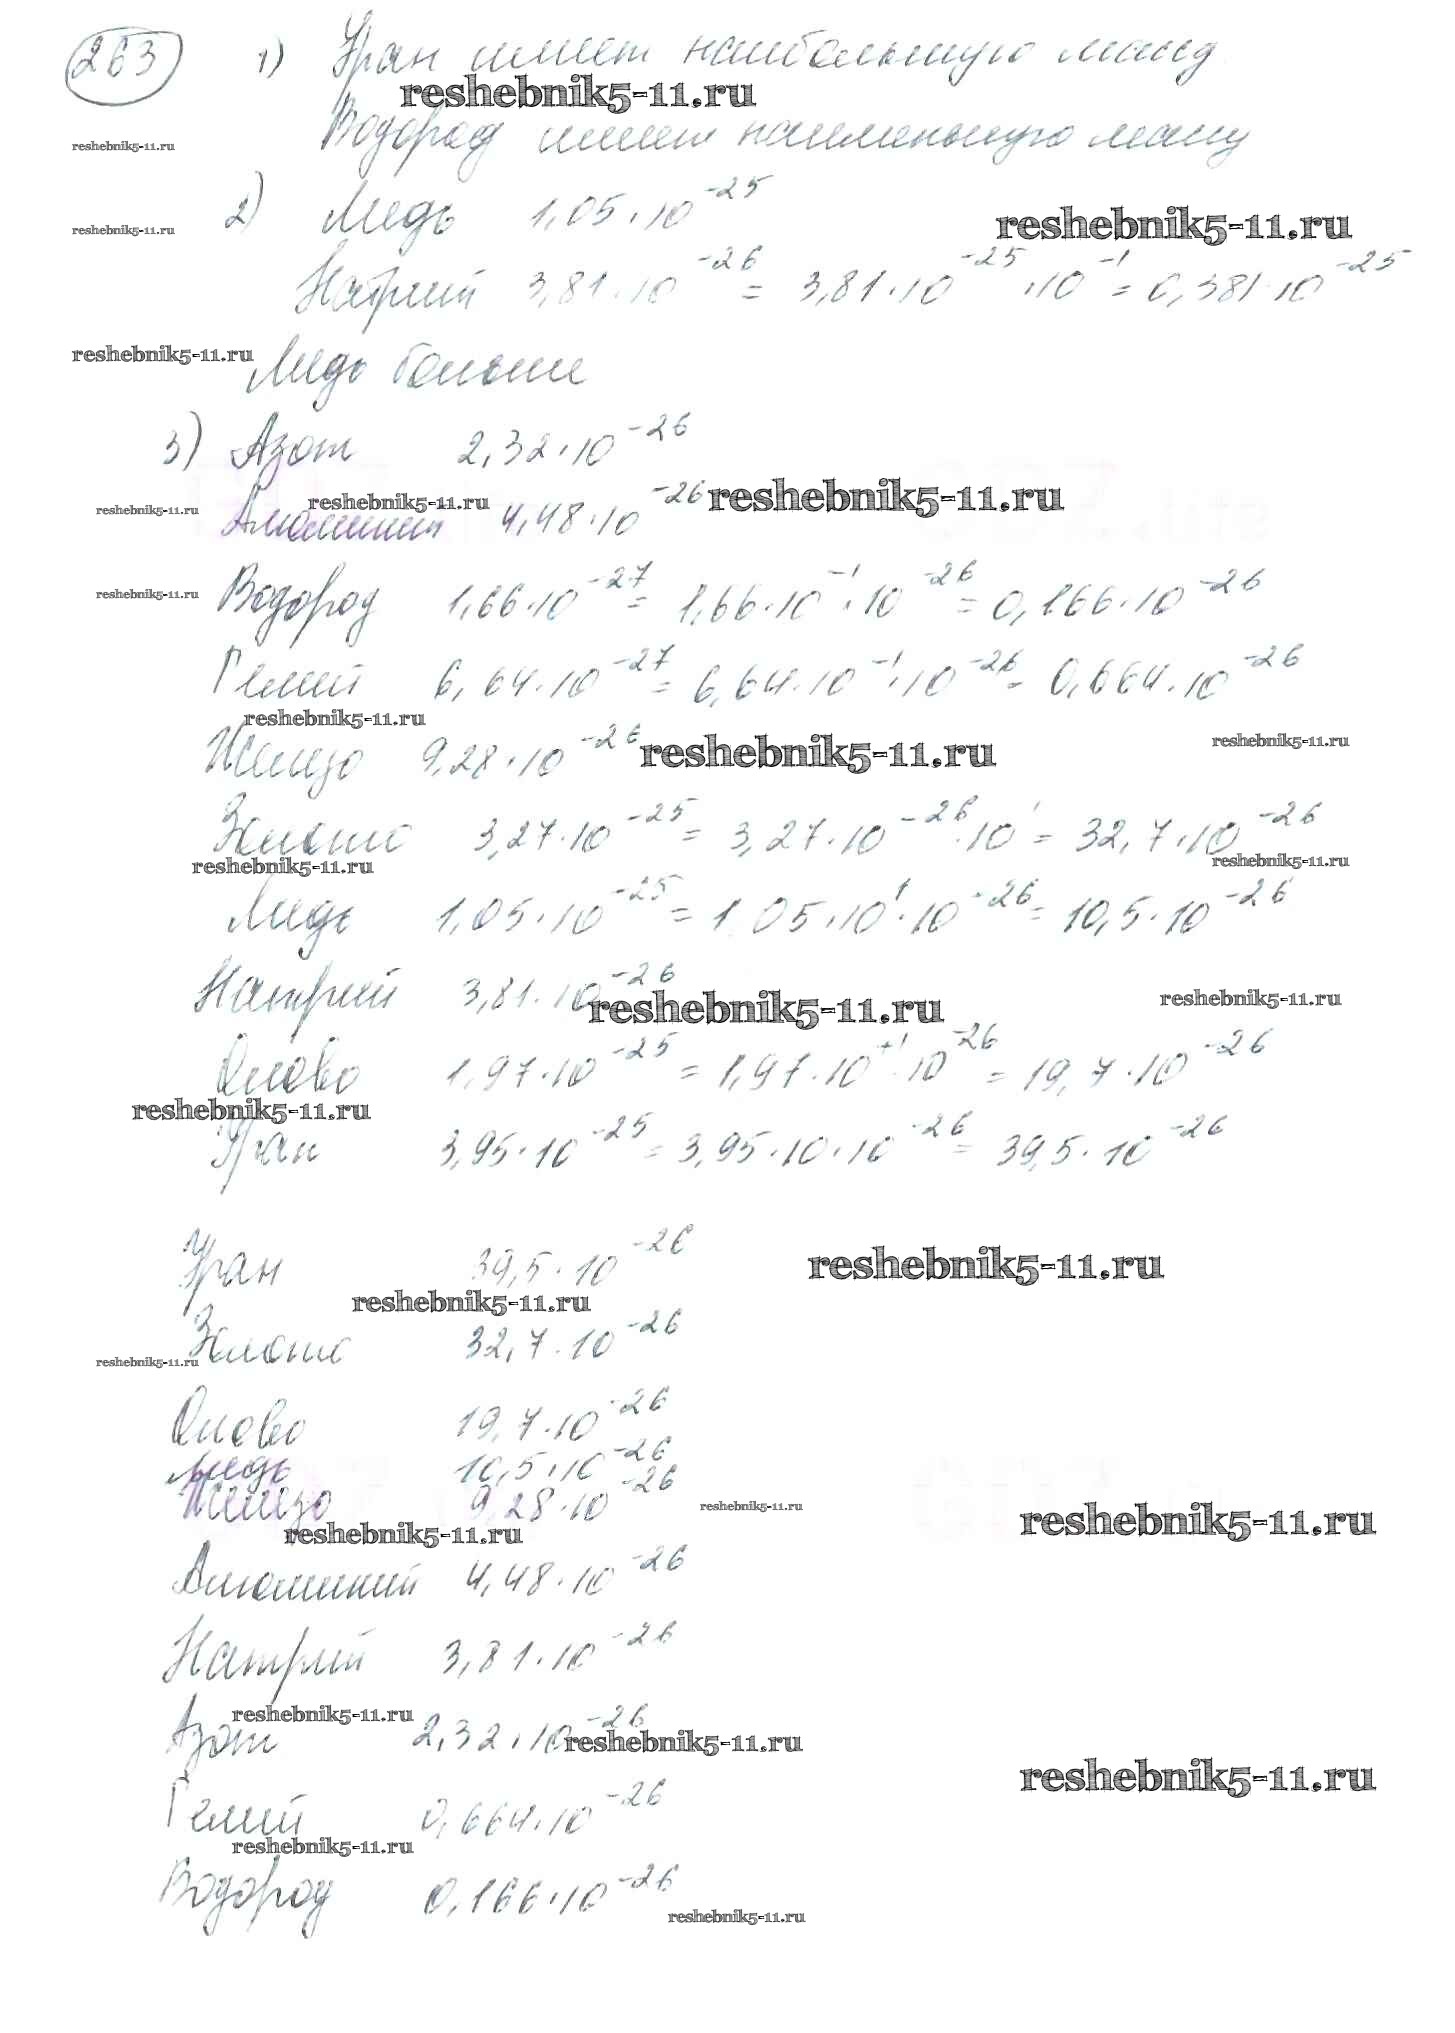 263 1) Уран имеет наибольшую массу
reshebnik5-11.ru
Водород имеет наименьшую массу
reshebnik5-11.ru
2) Медь 1,05·10^-25
reshebnik5-11.ru reshebnik5-11.ru
Натрий 3,81·10^-26 = 3,81·10^-25·10^-1 = 0,381·10^-25
reshebnik5-11.ru
Медь больше
3) Азот 2,32·10^-26
reshebnik5-11.ru reshebnik5-11.ru reshebnik5-11.ru
Алюминий 4,48·10^-26
reshebnik5-11.ru
Водород 1,66·10^-27 = 1,66·10^-1·10^-26 = 0,166·10^-26
Гелий 6,64·10^-27 = 6,64·10^-1·10^-26 = 0,664·10^-26
reshebnik5-11.ru
Железо 9,28·10^-26
reshebnik5-11.ru reshebnik5-11.ru
Золото 3,27·10^-25 = 3,27·10^-26·10^1 = 32,7·10^-26
reshebnik5-11.ru reshebnik5-11.ru
Медь 1,05·10^-25 = 1,05·10^1·10^-26 = 10,5·10^-26
Натрий 3,81·10^-26
reshebnik5-11.ru reshebnik5-11.ru
Олово 1,97·10^-25 = 1,97·10^+1·10^-26 = 19,7·10^-26
reshebnik5-11.ru
Уран 3,95·10^-25 = 3,95·10·10^-26 = 39,5·10^-26
Уран 39,5·10^-26
reshebnik5-11.ru
reshebnik5-11.ru
Золото 32,7·10^-26
reshebnik5-11.ru
Олово 19,7·10^-26
Медь 10,5·10^-26
Железо 9,28·10^-26
reshebnik5-11.ru reshebnik5-11.ru
reshebnik5-11.ru
Алюминий 4,48·10^-26
Натрий 3,81·10^-26
reshebnik5-11.ru
Азот 2,32·10^-26
reshebnik5-11.ru
reshebnik5-11.ru
Гелий 0,664·10^-26
reshebnik5-11.ru
Водород 0,166·10^-26
reshebnik5-11.ru